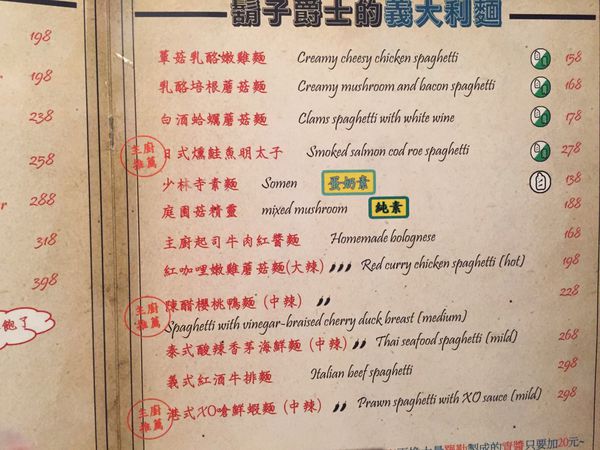 198
198
238
258
288
318
398
飽了
鬍子爵士的義大利麵
蕈菇乳酪嫩雞麵 Creamy cheesy chicken spaghetti 158
乳酪培根蘑菇麵 Creamy mushroom and bacon spaghetti 168
白酒蛤蠣蘑菇麵 Clams spaghetti with white wine 178
主廚推薦 日式燻鮭魚明太子 Smoked salmon cod roe spaghetti 278
少林寺素麵 Somen 蛋奶素 138
庭園菇精靈 mixed mushroom 純素 188
主廚起司牛肉紅醬麵 Homemade bolognese 168
紅咖哩嫩雞蘑菇麵(大辣) Red curry chicken spaghetti (hot) 198
主廚推薦 陳醋櫻桃鴨麵 (中辣) 228
Spaghetti with vinegar-braised cherry duck breast (medium)
泰式酸辣香茅海鮮麵 (中辣) Thai seafood spaghetti (mild) 268
義式紅酒牛排麵 Italian beef spaghetti 298
主廚推薦 港式XO嗆鮮蝦麵 (中辣) Prawn spaghetti with XO sauce (mild) 298
製成的青醬只要加20元~